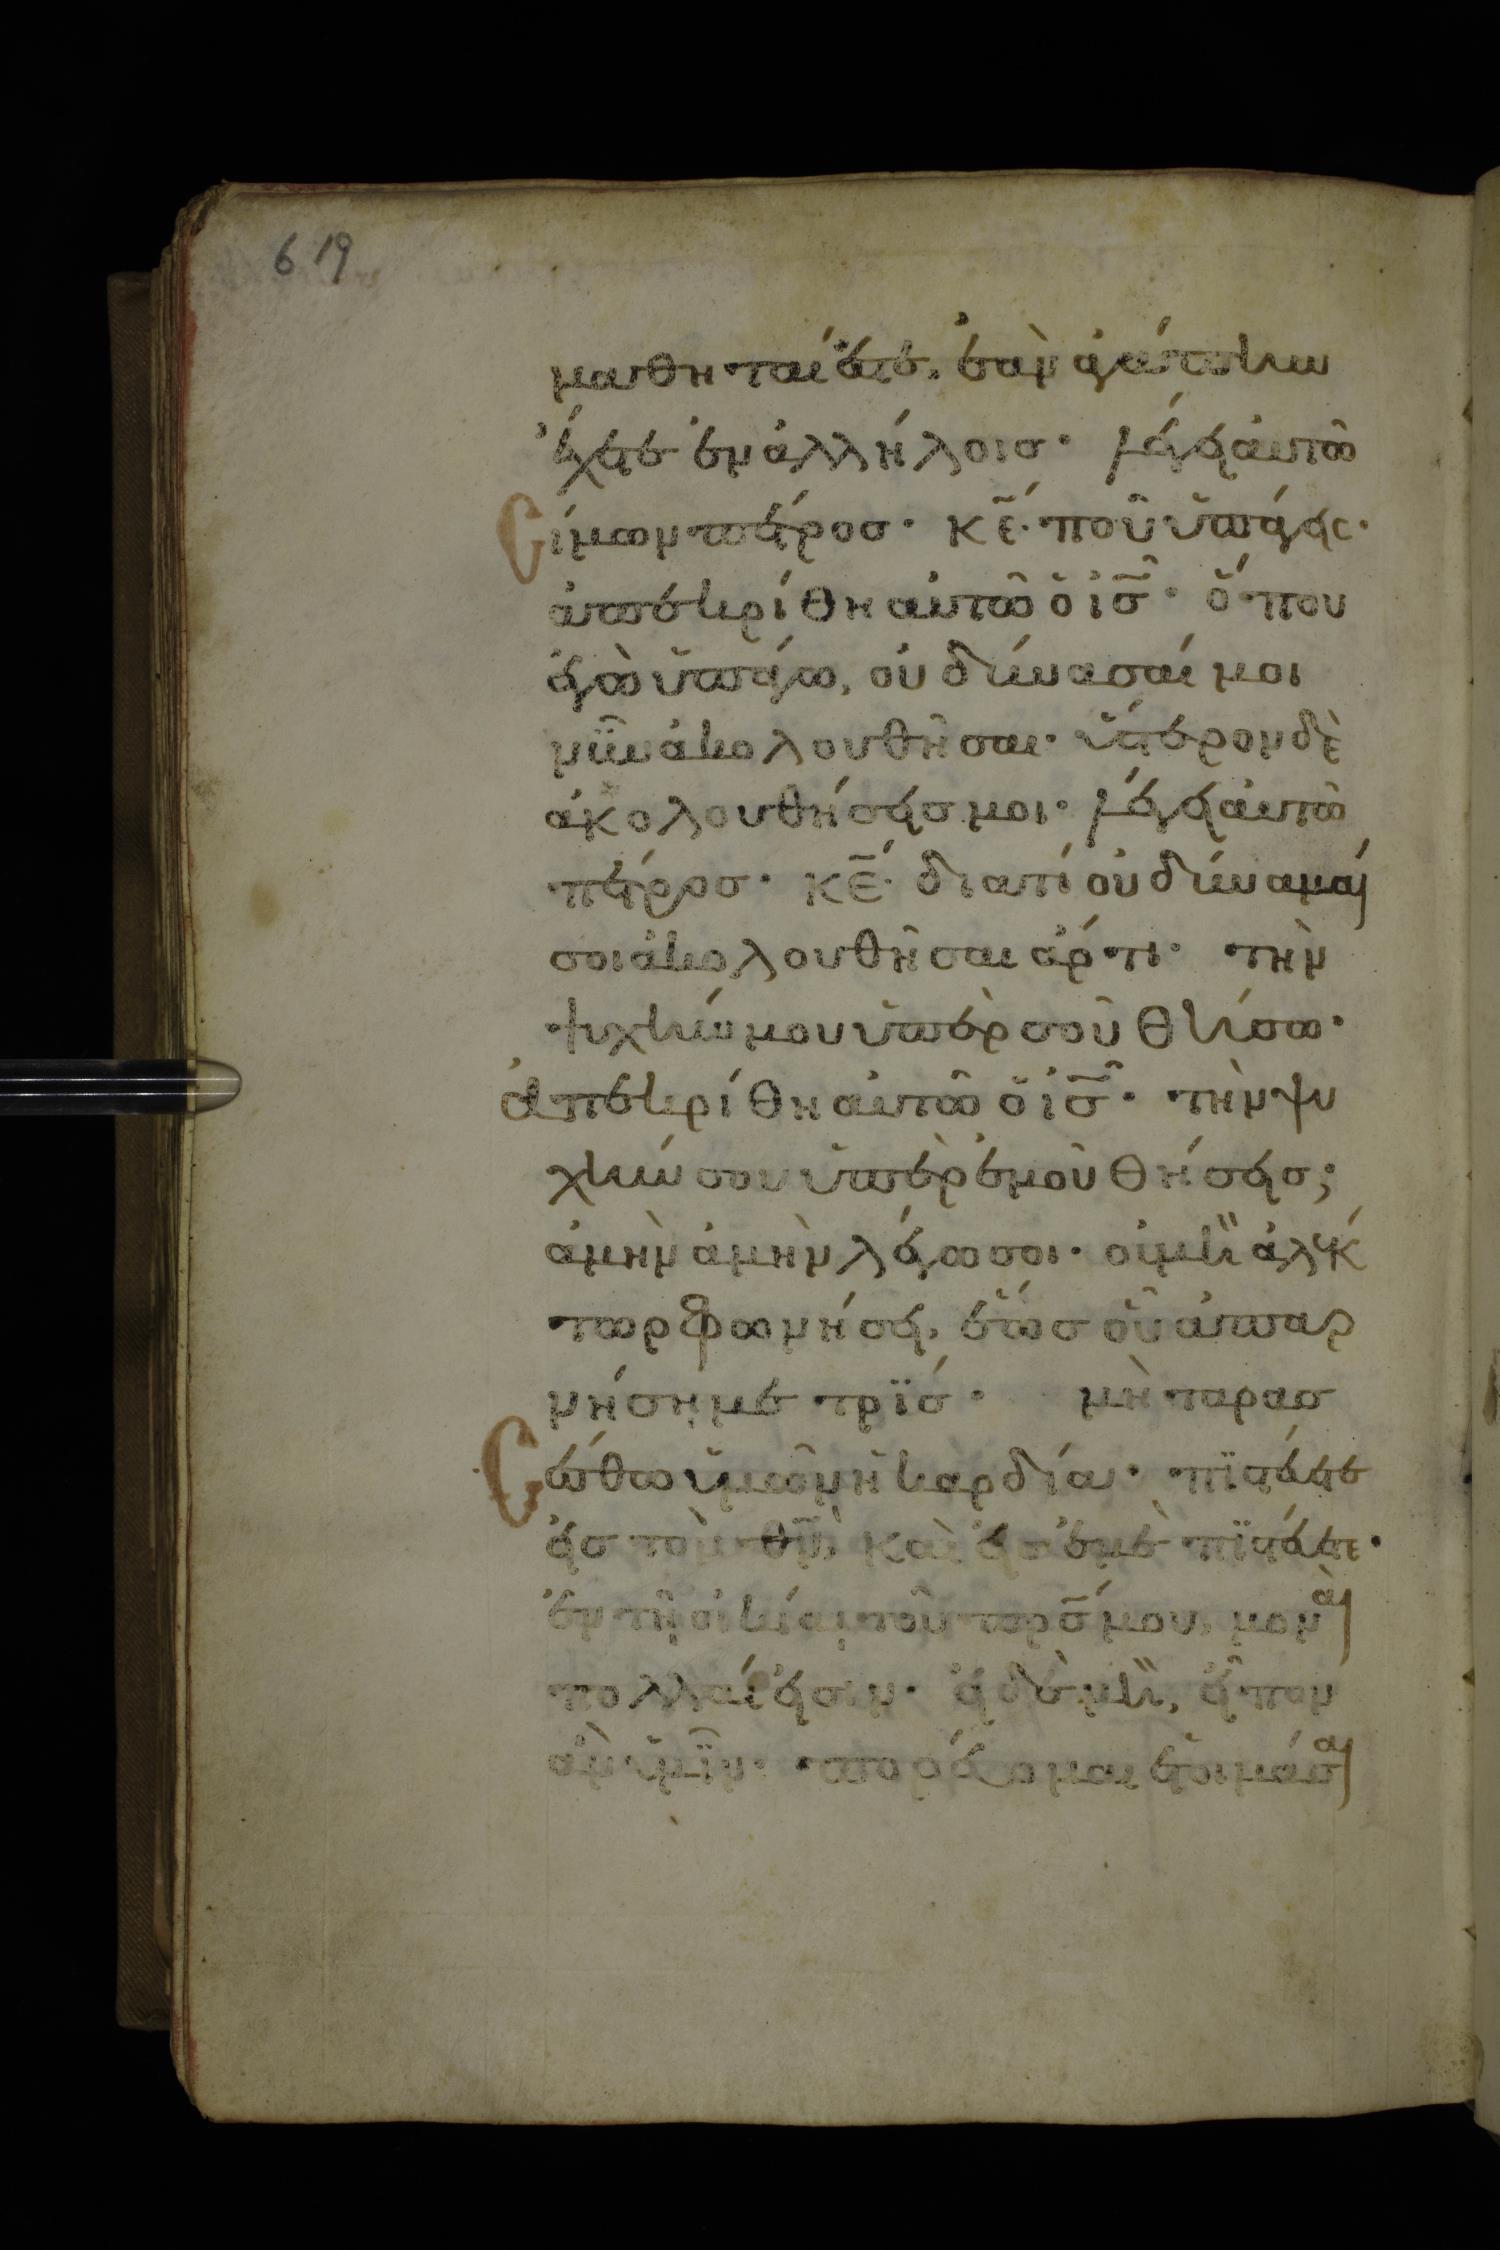 619
μαθηταί ἐστε, ἐὰν ἀγάπην
ἔχητε ἐν ἀλλήλοισ· λέγει αὐτῶ
Σίμων πέτροσ· κ̅ε̅· ποῦ ὑπάγεις·
ἀπεκρίθη αὐτῶ ὁ ι̅σ̅· ὅπου
ἐγὼ ὑπάγω, οὐ δύνασαί μοι
νῦν ἀκολουθῆσαι· ὕστερον δὲ
ἀκολουθήσεισ μοι· λέγει αὐτῶ
πέτροσ· κ̅ε̅· διατί οὐ δύναμαί
σοι ἀκολουθῆσαι ἄρτι· τὴν
ψυχήν μου ὑπὲρ σοῦ θήσω·
ἀπεκρίθη αὐτῶ ὁ ι̅σ̅· τὴν ψυ
χήν σου ὑπὲρ ἐμοῦ θήσεισ;
ἀμὴν ἀμὴν λέγω σοι· οὐ μὴ ἀλέκ
τωρ φωνήσει, ἕωσ οὗ ἀπαρ
νήσῃ με τρίσ· μὴ ταρασ
Σώθω ὑμῶν ἡ καρδία· πιστεύετε
εἰσ τὸν θ̅ν̅, καὶ εἰσ ἐμὲ πιστεύετε·
ἐν τῆ οἰκίαι τοῦ π̅ρ̅σ̅ μου, μοναὶ
πολλαί εἰσιν· εἰ δὲ μὴ, εἶπον
ἂν ὑμῖν· πορεύομαι ἑτοιμάσαι